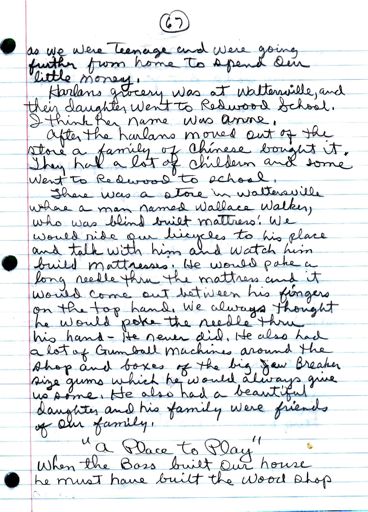 67
as we were teenage and were going
further from home to spend our
little money.
Harlans grocery was at Waltersville, and
their daughter went to Redwood School.
I think her name was Anne.
After the harlans moved out of the
store a family of Chinese bought it.
They had a lot of children and some
went to Redwood to school.
There was a store in Waltersville
where a man named Wallace Walker,
who was blind built mattress. We
would ride our bicycles to his place
and talk with him and watch him
build mattresses. He would poke a
long needle thru the mattress and it
would come out between his fingers
on the top hand. We always thought
he would poke the needle thru
his hand - He never did. He also had
a lot of Gumball Machines around the
shop and boxes of the big Jaw Breaker
size gums which he would always give
us some. He also had a beautiful
daughter and his family were friends
of our family.
"A Place to Play"
When the Boss built our house
he must have built the wood shop